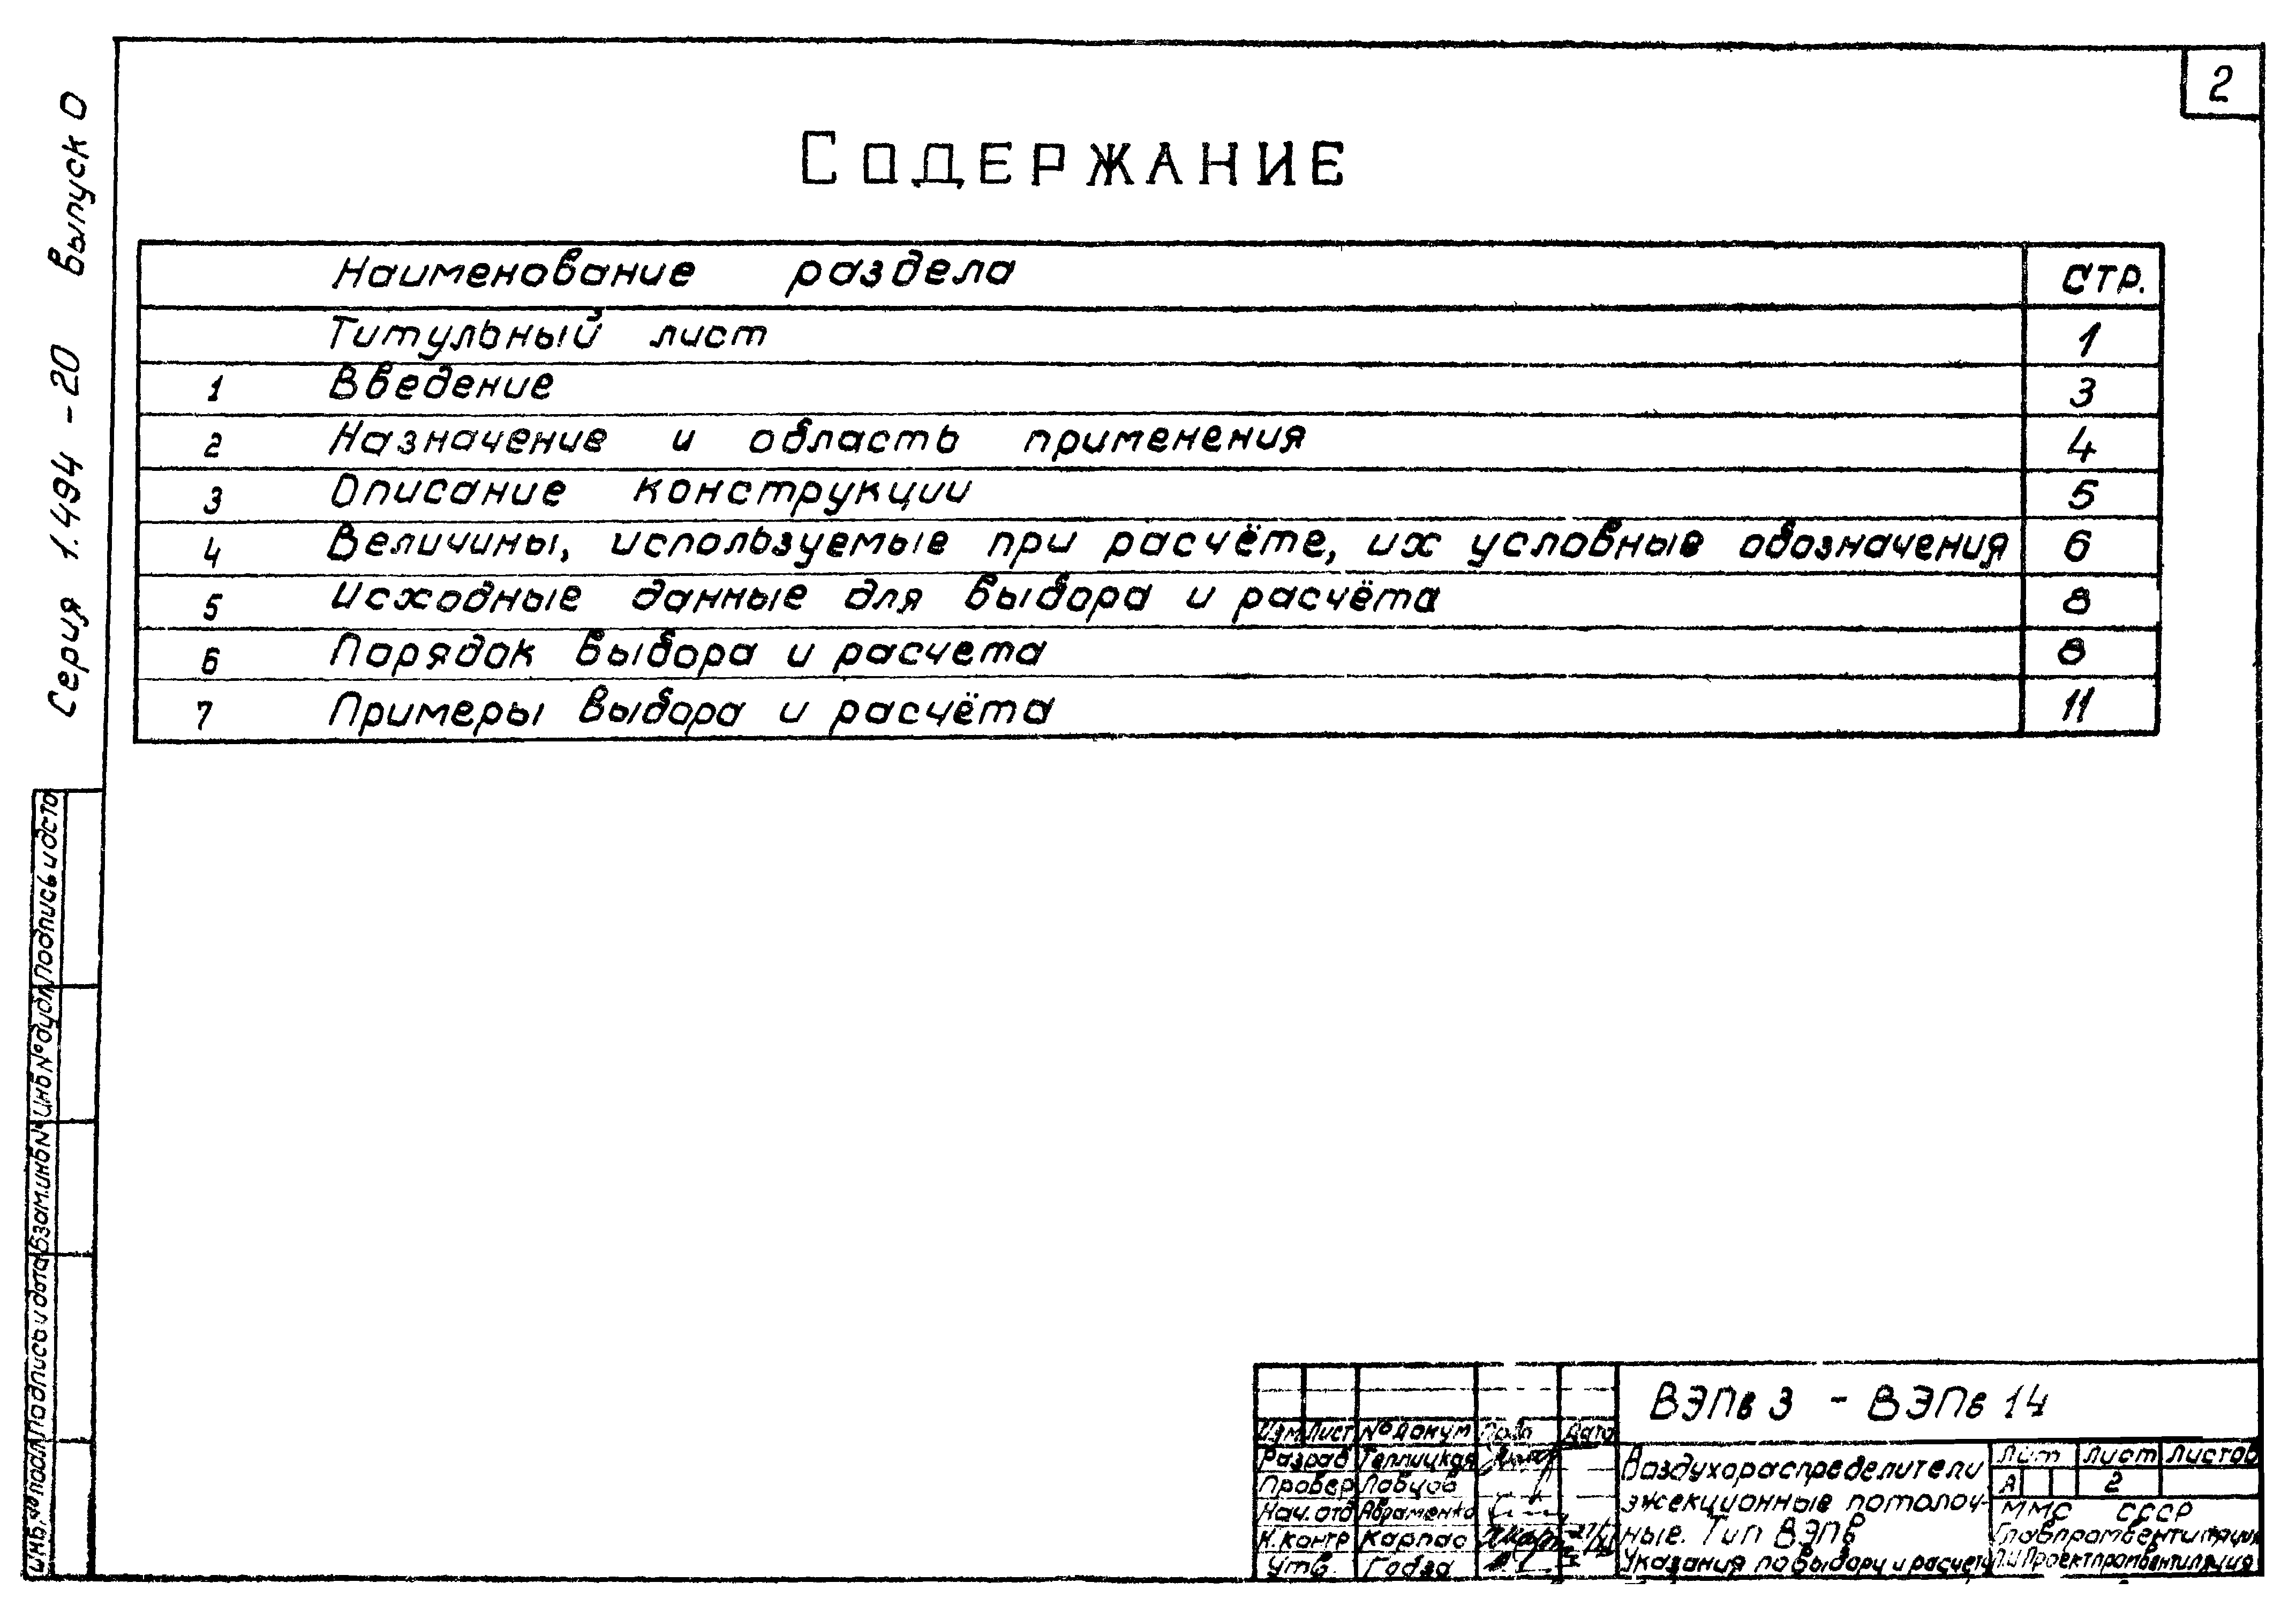 2
Серия 1.494-20 Выпуск 0
СОДЕРЖАНИЕ
Наименование раздела стр.
Титульный лист 1
1 Введение 3
2 Назначение и область применения 4
3 Описание конструкции 5
4 Величины, используемые при расчёте, их условные обозначения 6
5 Исходные данные для выбора и расчёта 8
6 Порядок выбора и расчета 8
7 Примеры выбора и расчёта 11
Инв.№ подл Подпись и дата Взам.инв№ Инв№дубл Подпись и дата
ВЭПв 3 - ВЭПв 14
Изм Лист №докум Подп Дата
Разраб Теплицкая
Провер Лобцов
Нач.отд Авраменко
Н.контр Карпас
Утв. Гобза
Воздухораспределители
эжекционные потолоч-
ные. Тип ВЭПв
Указания по выбору и расчету
Лит Лист Листов
А 2
ММС СССР
Главпромвентиляция
ПИ Проектпромвентиляция